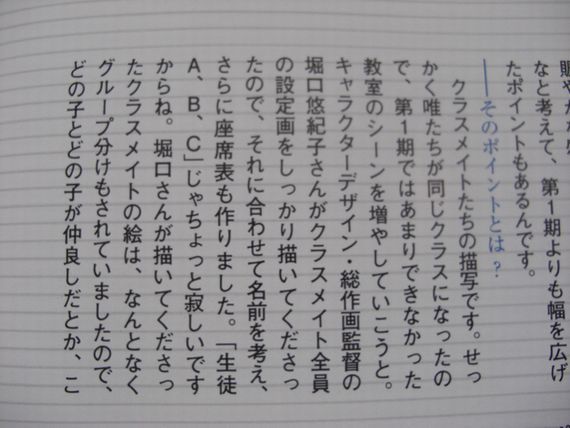 なと考えて、第1期よりも幅を広げ
たポイントもあるんです。
――そのポイントとは?
クラスメイトたちの描写です。せっ
かく唯たちが同じクラスになったの
で、第1期ではあまりできなかった
教室のシーンを増やしていこうと。
キャラクターデザイン・総作画監督の
堀口悠紀子さんがクラスメイト全員
の設定画をしっかり描いてくださっ
たので、それに合わせて名前を考え、
さらに座席表も作りました。「生徒
A、B、C」じゃちょっと寂しいです
からね。堀口さんが描いてくださっ
たクラスメイトの絵は、なんとなく
グループ分けもされていましたので、
どの子とどの子が仲良しだとか、こ